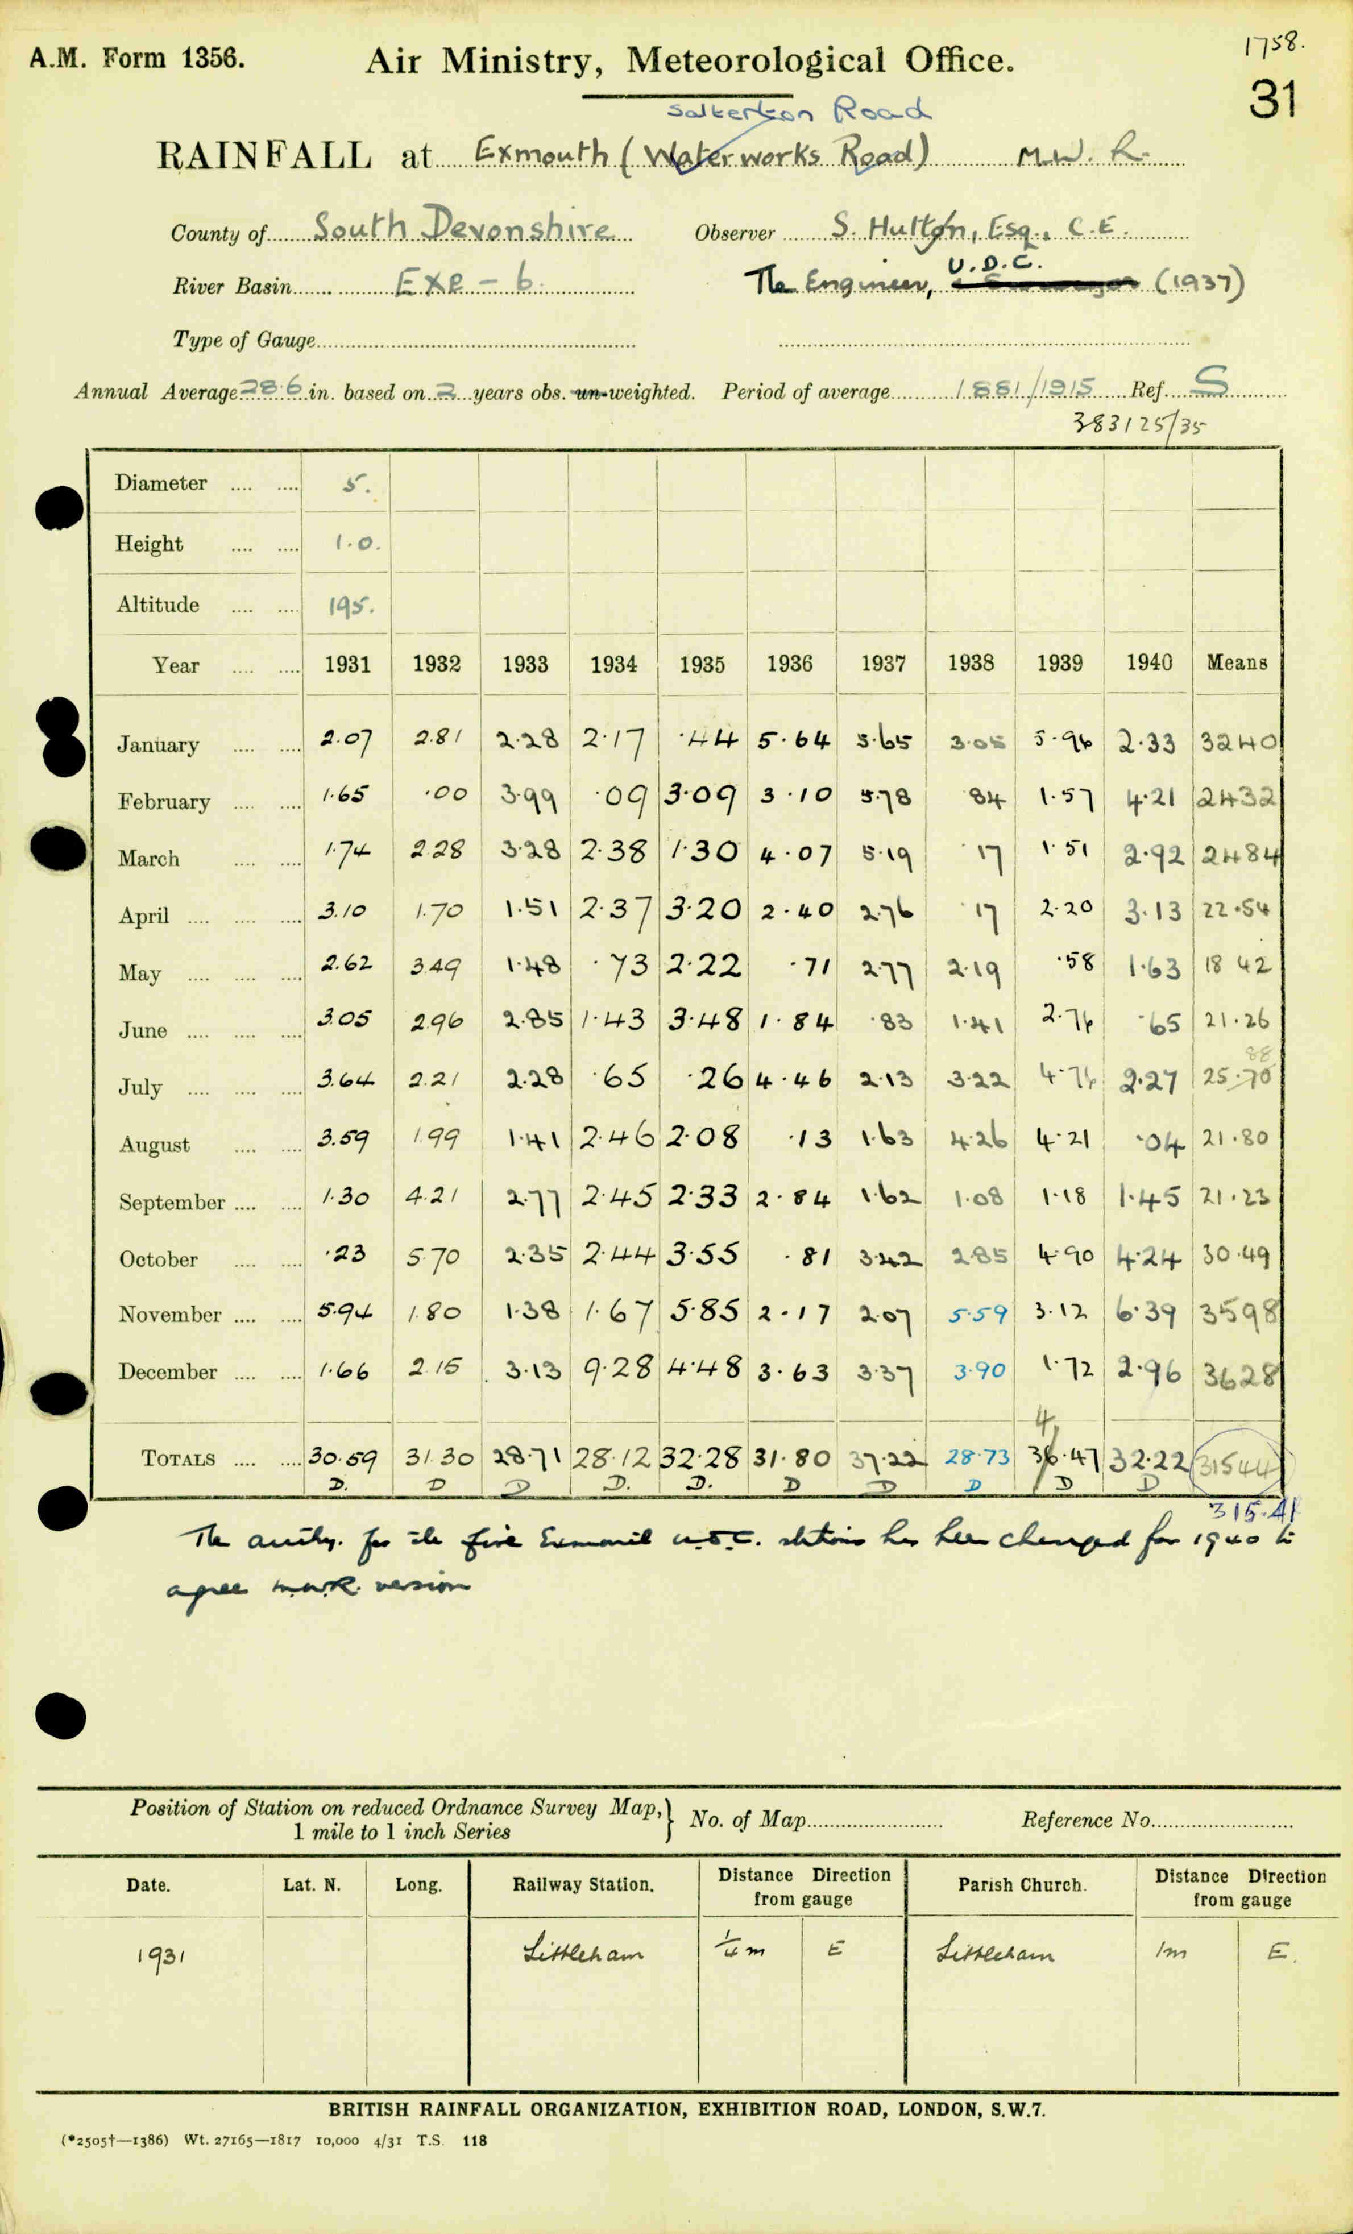 1758.
A.M. Form 1356. Air Ministry, Meteorological Office.
31
Salterton Road
RAINFALL at Exmouth (Waterworks Road) M.W. R.
County of South Devonshire Observer S. Hutton, Esq., C.E.
U.D.C.
River Basin Exe - 6. The Engineer, (1937)
Type of Gauge
Annual Average 28.6 in. based on 2 years obs. un-weighted. Period of average 1881/1915 Ref. S
383125/35
Diameter 5.
Height 1.0.
Altitude 195.
Year 1931 1932 1933 1934 1935 1936 1937 1938 1939 1940 Means
January 2.07 2.81 2.28 2.17 .44 5.64 5.65 3.05 5.96 2.33 3240
February 1.65 .00 3.99 .09 3.09 3.10 5.78 84 1.57 4.21 2432
March 1.74 2.28 3.28 2.38 1.30 4.07 5.19 .17 1.51 2.92 2484
April 3.10 1.70 1.51 2.37 3.20 2.40 2.76 .17 2.20 3.13 22.54
May 2.62 3.49 1.48 .73 2.22 .71 2.77 2.19 .58 1.63 18 42
June 3.05 2.96 2.85 1.43 3.48 1.84 .83 1.41 2.76 .65 21.26
88
July 3.64 2.21 2.28 .65 .26 4.46 2.13 3.22 4.76 2.27 25.70
August 3.59 1.99 1.41 2.46 2.08 .13 1.63 4.26 4.21 .04 21.80
September 1.30 4.21 2.77 2.45 2.33 2.84 1.62 1.08 1.18 1.45 21.23
October .23 5.70 2.35 2.44 3.55 .81 3.42 2.85 4.90 4.24 30.49
November 5.94 1.80 1.38 1.67 5.85 2.17 2.07 5.59 3.12 6.39 3598
December 1.66 2.15 3.13 9.28 4.48 3.63 3.37 3.90 1.72 2.96 3628
4
TOTALS 30.59 31.30 28.71 28.12 32.28 31.80 37.22 28.73 36.47 32.22 31544
D. D D D. D. D D D D D
315.41
The authy. for the five Exmouth U.D.C. stations has been changed for 1940 to
agree M.W.R. version
Position of Station on reduced Ordnance Survey Map, } No. of Map Reference No.
1 mile to 1 inch Series
Date. Lat. N. Long. Railway Station. Distance Direction from gauge Parish Church. Distance Direction from gauge
1931 Littleham 1/4 m E Littleham 1m E.
BRITISH RAINFALL ORGANIZATION, EXHIBITION ROAD, LONDON, S.W.7.
(*2505†—1386) Wt. 27165—1817 10,000 4/31 T.S. 118